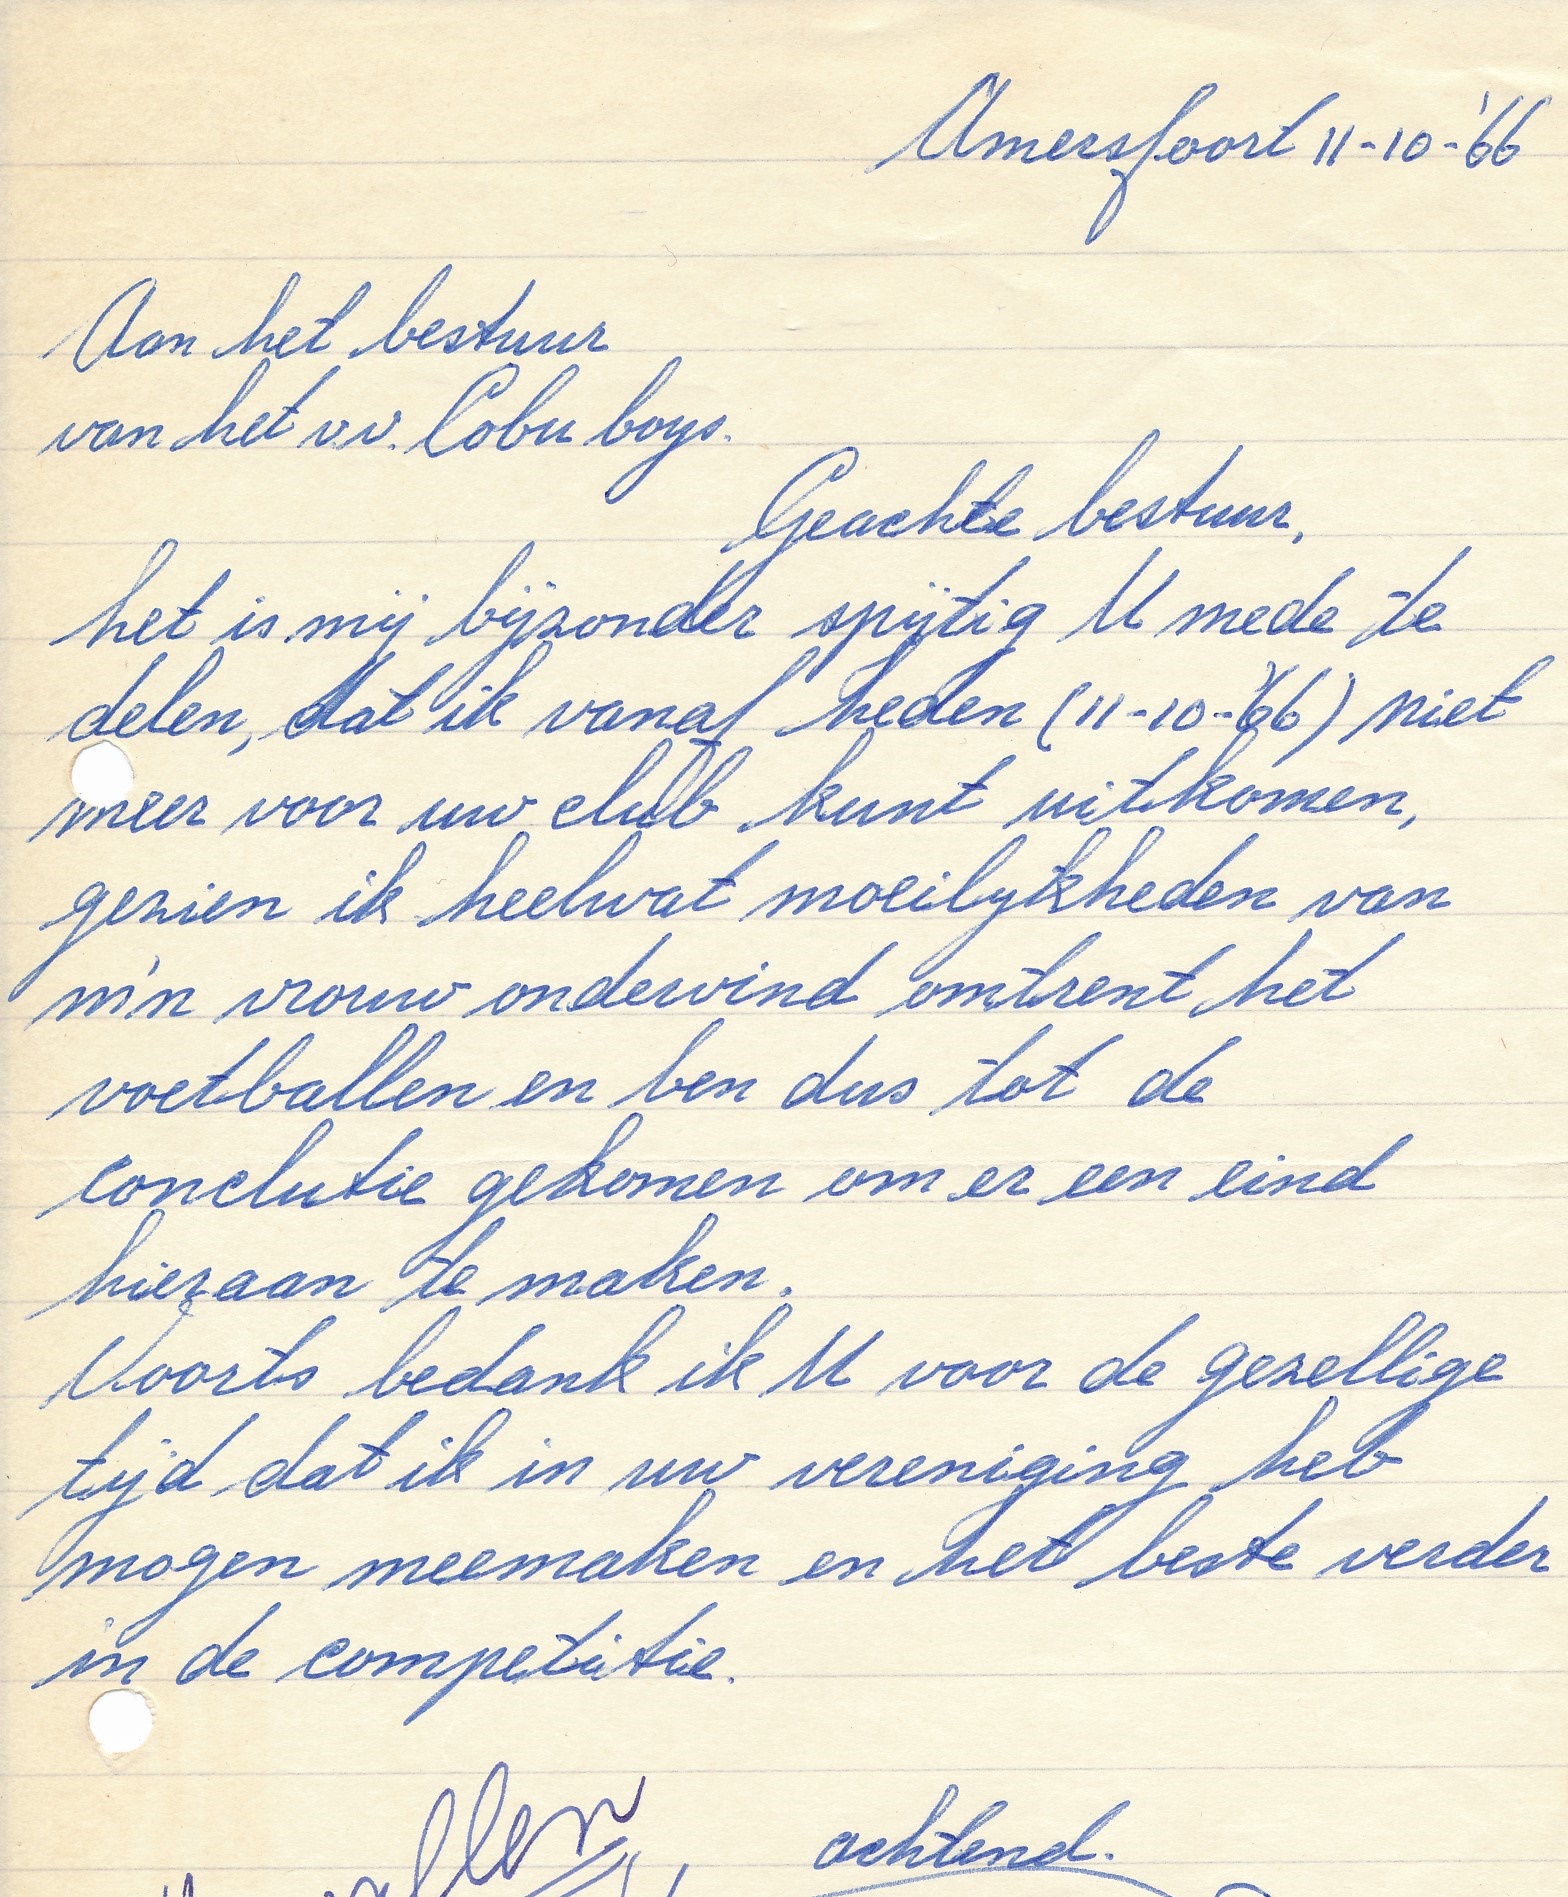 Amersfoort 11-10-'66
Aan het bestuur
van het v.v. Cobu boys.
Geachte bestuur,
het is mij bijzonder spijtig U mede te
delen, dat ik vanaf heden (11-10-'66) niet
meer voor uw club kunt uitkomen,
gezien ik heelwat moeilijkheden van
m'n vrouw ondervind omtrent het
voetballen en ben dus tot de
conclutie gekomen om er een eind
hieraan te maken.
Voorts bedank ik U voor de gezellige
tijd dat ik in uw vereniging heb
mogen meemaken en het beste verder
in de competitie.
achtend.